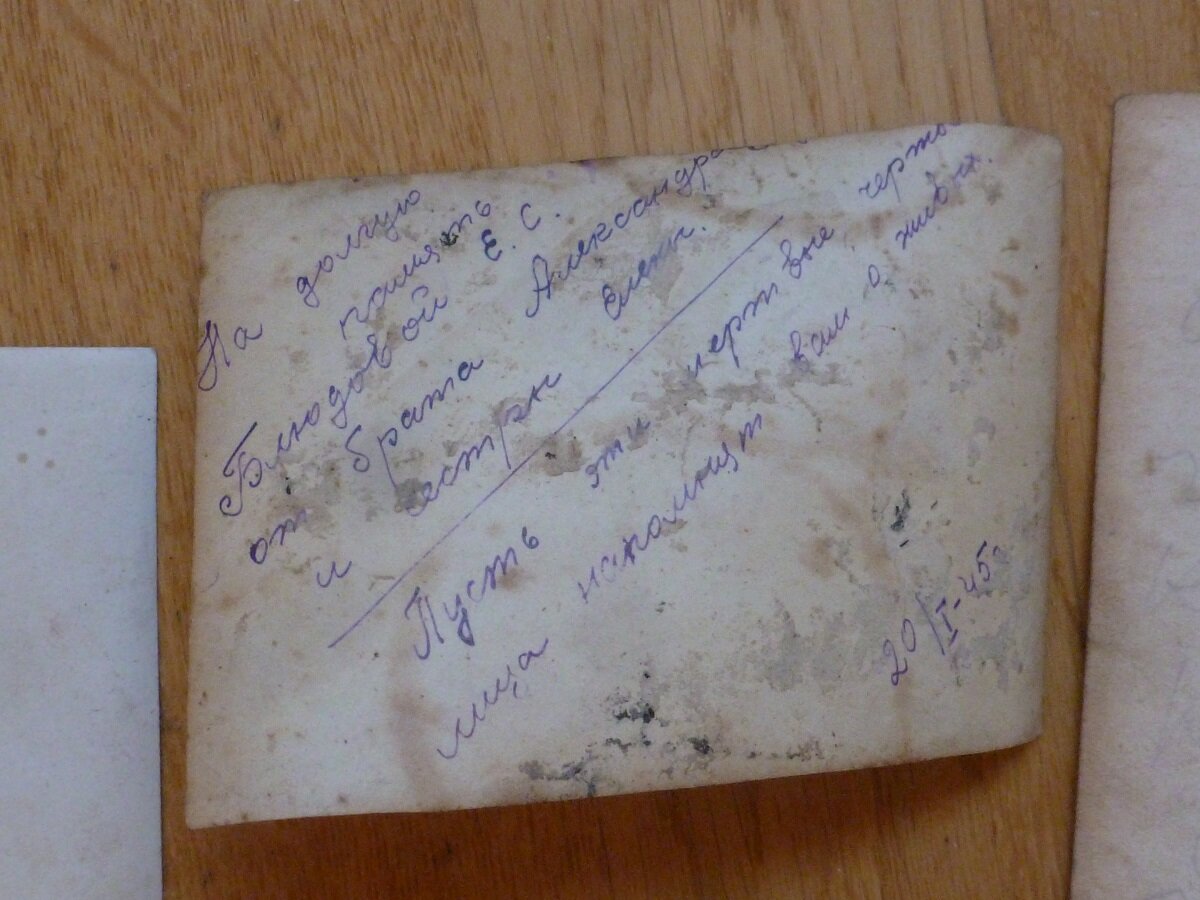 На долгую
память
Блюдовой Е. С.
от брата Александра
и сестры Елены.
Пусть эти мертвые черты
лица напомнят вам о живых.
20/I-45